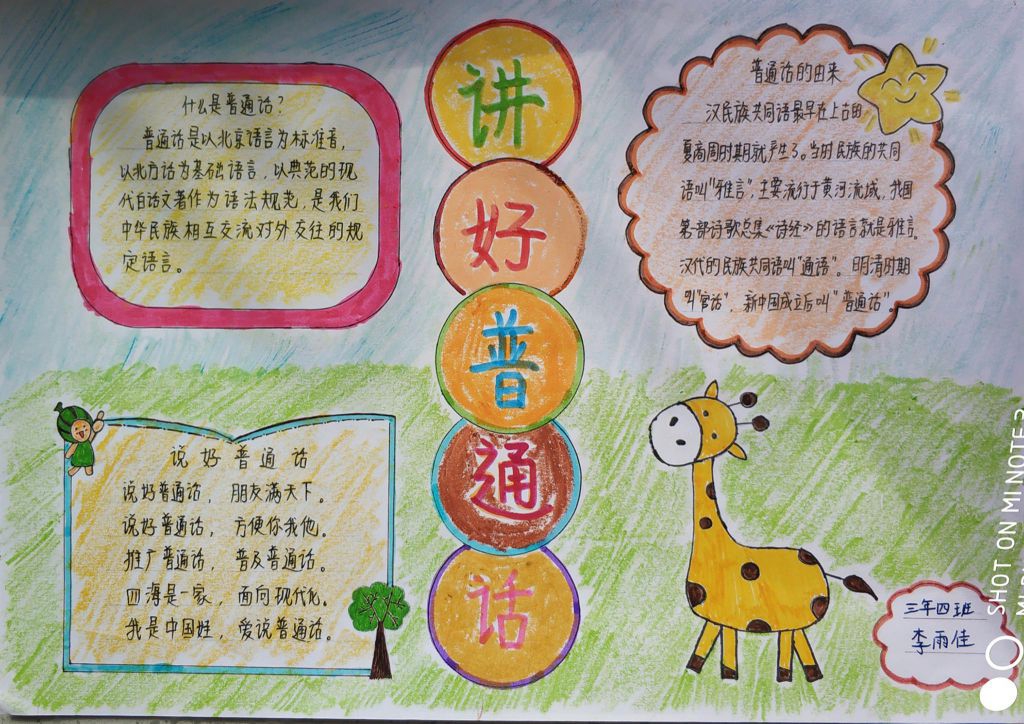 什么是普通话?
普通话是以北京语言为标准音,
以北方话为基础语言,以典范的现
代白话文著作为语法规范,是我们
中华民族相互交流对外交往的规
定语言。
讲
好
普
通
话
普通话的由来
汉民族共同语最早在上古的
夏商周时期就产生了。当时民族的共同
语叫"雅言",主要流行于黄河流域,我国
第一部诗歌总集《诗经》的语言就是雅言。
汉代的民族共同语叫"通语"。明清时期
叫"官话",新中国成立后叫"普通话"。
说好普通话
说好普通话,朋友满天下。
说好普通话,方便你我他。
推广普通话,普及普通话。
四海是一家,面向现代化。
我是中国娃,爱说普通话。
三年四班
李雨佳
SHOT ON MI NOTE 3